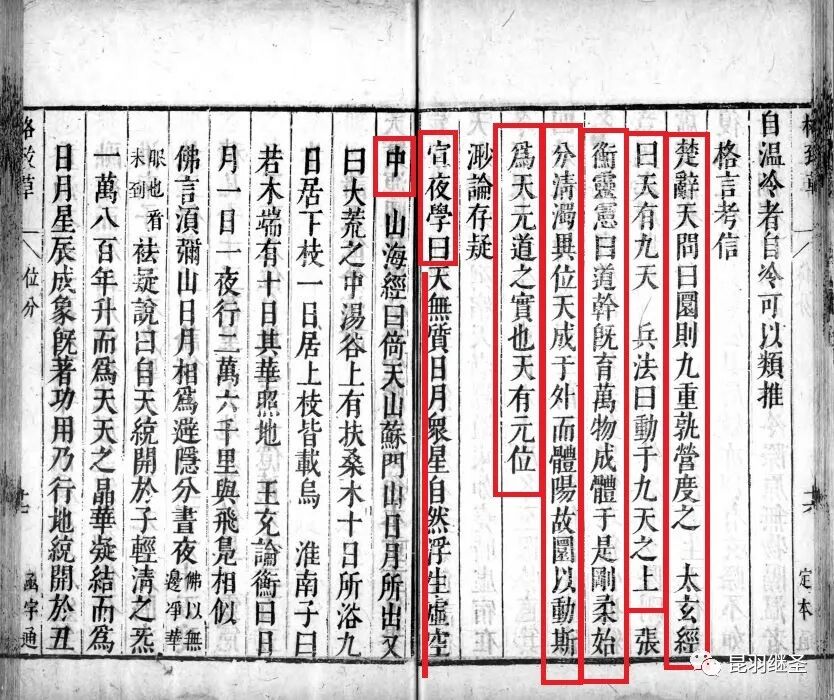 自溫冷者自冷可以類推
格言考信
楚辭天問曰圜則九重孰營度之 太玄經
曰天有九天 兵法曰動于九天之上 張
衡靈憲曰道幹旣育萬物成體于是剛柔始
分清濁異位天成于外而體陽故圜以動斯
爲天元道之實也天有元位
渺論存疑
宣夜學曰天無質日月衆星自然浮生虛空
中 山海經曰倚天山蘇門山日月所出又
曰大荒之中湯谷上有扶桑木十日所浴九
日居下枝一日居上枝皆載烏 淮南子曰
若木端有十日其華照地 王充論衡曰日
月一日一夜行二萬六千里與飛鳧相似
佛言湏彌山日月相爲避隱分晝夜 佛以無邊凈華
眼也看未到 祛疑說曰自天統開於子輕清之炁
一萬八百年升而爲天天之晶華凝結而爲
日月星辰成象旣著功用乃行地統開於丑
格致草 位分 函宇通
定本
昆羽继圣